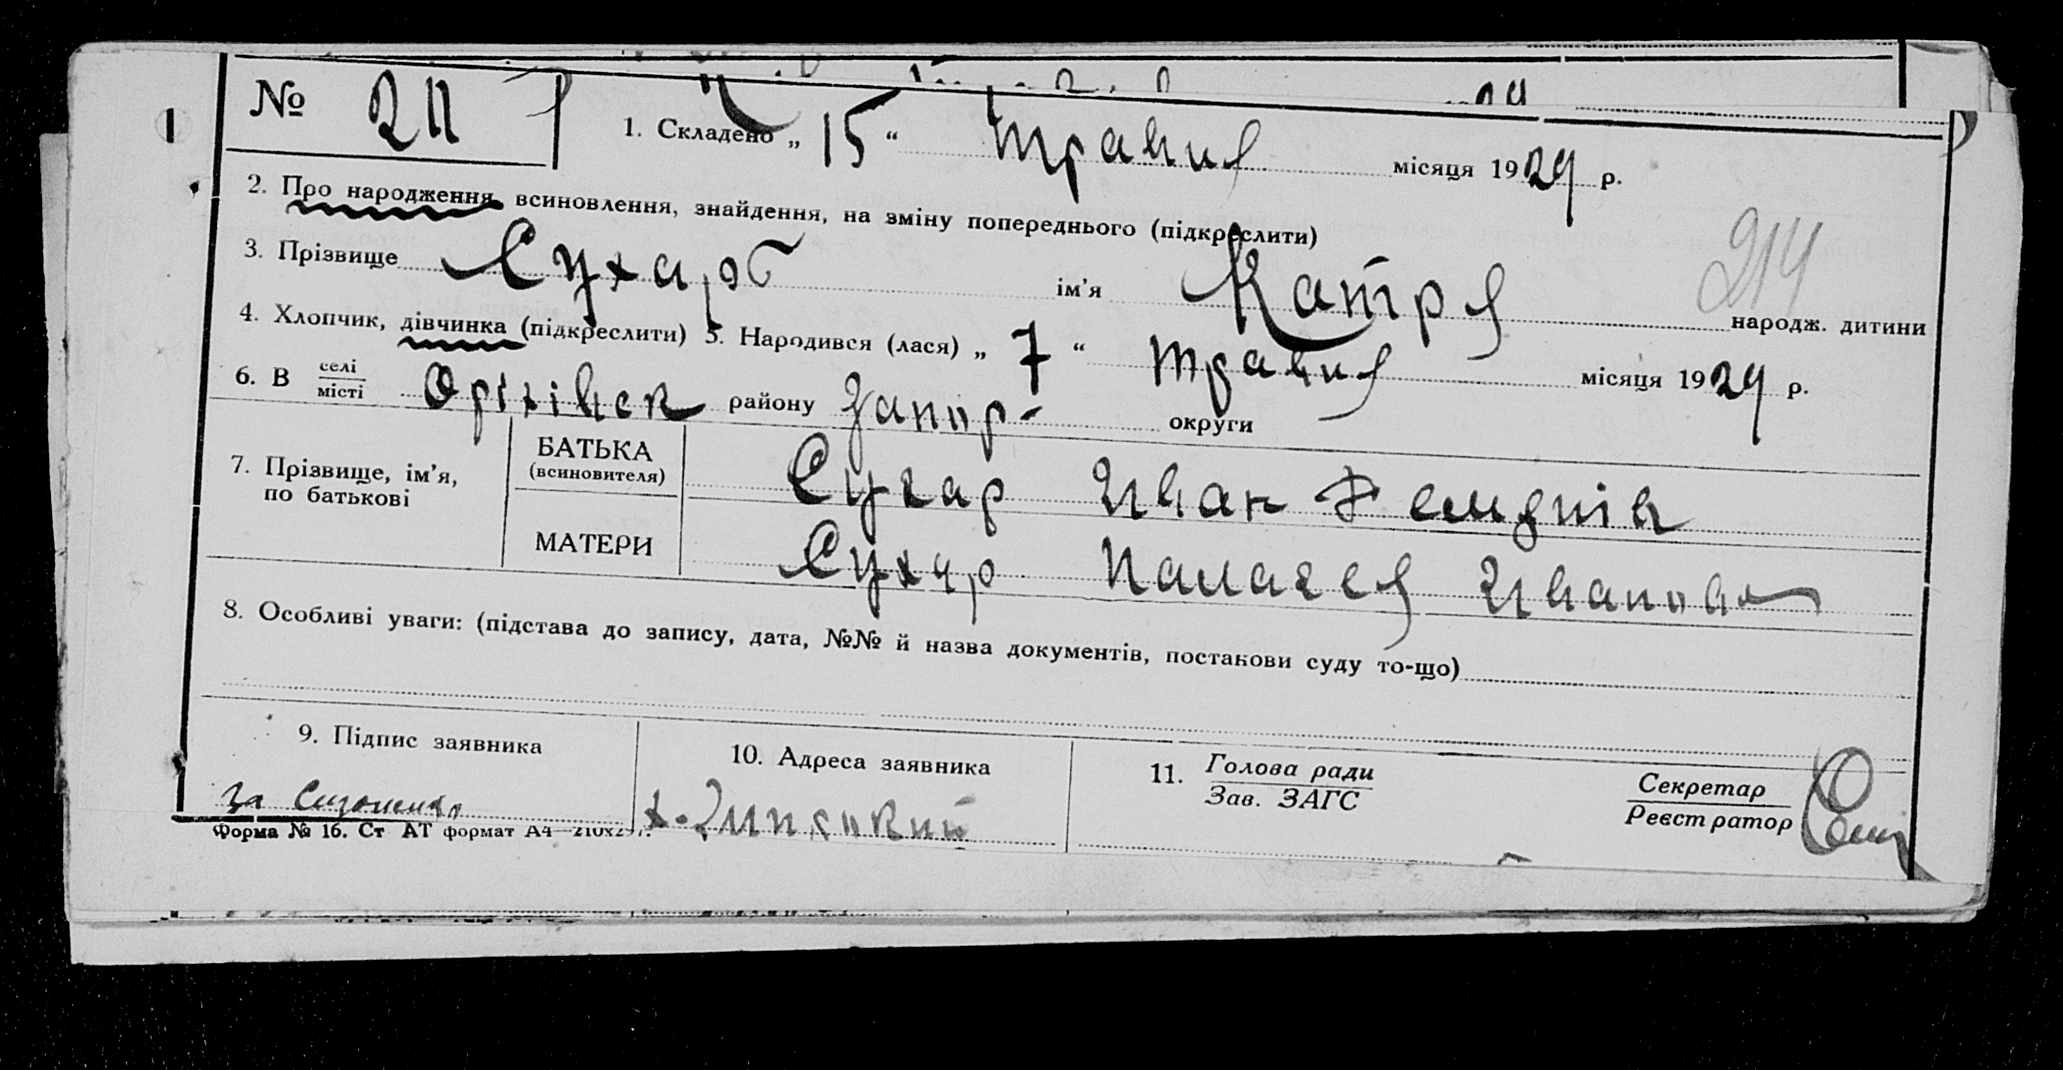 № 211
1. Складено „ 15 “ травня місяця 1929 р.
2. Про народження, всиновлення, знайдення, на зміну попереднього (підкреслити)
214
3. Прізвище Сухар ім'я Катря народж. дитини
4. Хлопчик, дівчинка (підкреслити) 5. Народився (лася) „ 7 “ травня місяця 1929 р.
6. В селі місті Оріхівськ району Запор- округи
7. Прізвище, ім'я, по батькові
БАТЬКА (всиновителя) Сухар Иван
МАТЕРИ Сухар Палагея Иванова
8. Особливі уваги: (підстава до запису, дата, №№ й назва документів, постанови суду то-що)
9. Підпис заявника
10. Адреса заявника
11. Голова ради Зав. ЗАГС
Секретар Реєстратор
за
х.
Форма № 16. Ст АТ формат А4—210х297.